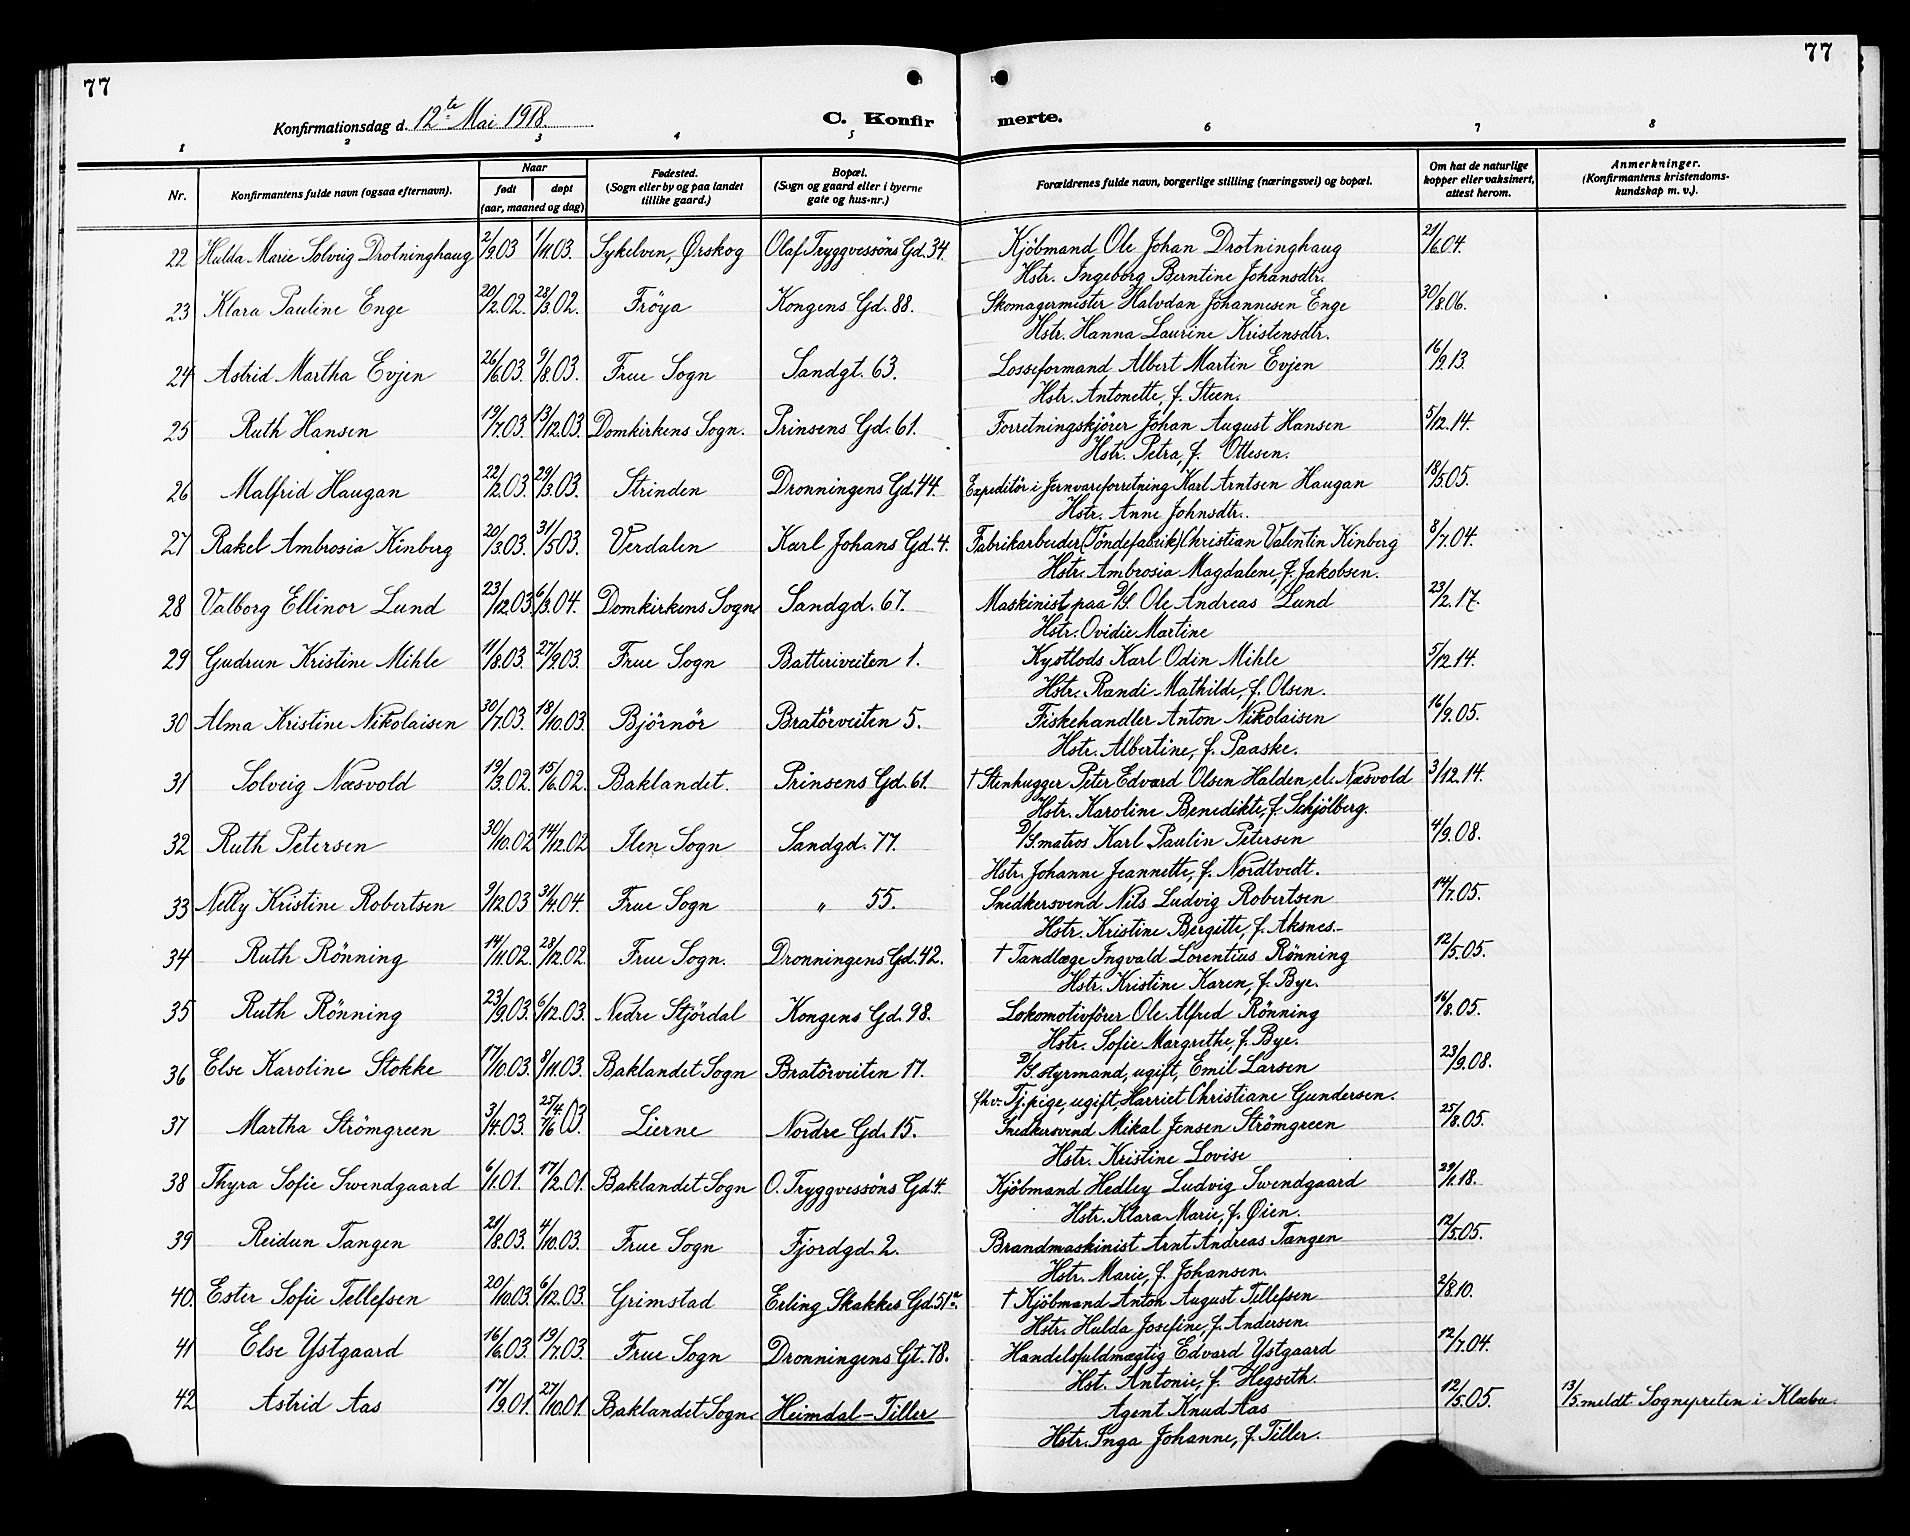 77
77
Konfirmationsdag d. 12te Mai 1918.
C. Konfirmerte.
1 2 3 4 5 6 7 8
Nr.
Konfirmantens fulde navn (ogsaa efternavn).
Naar
født
døpt
(aar, maaned og dag)
Fødested.
(Sogn eller by og paa landet
tillike gaard.)
Bopæl.
(Sogn og gaard eller i byerne
gate og hus-nr.)
Forældrenes fulde navn, borgerlige stilling (næringsvei) og bopæl.
Om hat de naturlige
kopper eller vaksinert,
attest herom.
Anmerkninger.
(Konfirmantens kristendoms-
kundskap m. v.).
22 Hulda Marie Solveig Drotninghaug 2/9.03 1/11.03. Sykelven, Ørskog Olaf Tryggvessöns Gd. 34. Kjöbmand Ole Johan Drotninghaug 21/6.04.
Hstr. Ingeborg Berntine Johansdtr.
23 Klara Pauline Enge 20/2.02. 28/3.02. Fröya Kongens Gd. 88. Skomagermester Halvdan Johannesen Enge 30/8.06.
Hstr. Hanna Laurine Kristensdtr.
24 Astrid Martha Evjen 26/6.03. 9/8.03. Frue Sogn Sandgt. 63. Losseformand Albert Martin Evjen 16/9.13.
Hstr. Antonette, f. Steen.
25 Ruth Hansen 19/7.03. 13/12.03. Domkirkens Sogn. Prinsens Gd. 61. Forretningskjörer Johan August Hansen 5/12.14.
Hstr. Petra, f. Ottesen.
26 Malfrid Haugan 22/2.03. 29/3.03. Strinden Dronningens Gd. 44. Expeditör i Jernvareforretning Karl Arntsen Haugan 18/5.05.
Hstr. Anne Johnsdtr.
27 Rakel Ambrosia Kinberg 20/3.03. 31/5.03. Verdalen Karl Johans Gd. 4. Fabrikarbeider (Töndefabrik) Christian Valentin Kinberg 8/7.04.
Hstr. Ambrosia Magdalene, f. Jakobsen.
28 Valborg Ellinor Lund 23/12.03. 6/3.04. Domkirkens Sogn Sandgd. 67. Maskinist paa D/S. Ole Andreas Lund 23/2.17.
Hstr. Ovidie Martine
29 Gudrun Kristine Mihle 11/8.03. 27/9.03. Frue Sogn Batteriveiten 1. Kystlods Karl Odin Mihle 5/12.14.
Hstr. Randi Mathilde, f. Olsen.
30 Alma Kristine Nikolaisen 30/7.03. 18/10.03. Björnör Bratörveiten 5. Fiskehandler Anton Nikolaisen 16/9.05.
Hstr. Albertine, f. Paaske.
31 Solveig Næsvold 19/3.02. 15/6.02. Baklandet. Prinsens Gd. 61. † Stenhugger Peter Edvard Olsen Halden, el. Næsvold 3/12.14.
Hstr. Karoline Benedikte, f. Schjölberg.
32 Ruth Petersen 30/10.02 14/12.02 Ilen Sogn Sandgd. 77. D/S. matros Karl Paulin Petersen 4/9.08.
Hstr. Johanne Jeannette, f. Nordtvedt.
33 Nelly Kristine Robertsen 9/12.03 3/4.04. Frue Sogn „ 55. Snedkersvend Nils Ludvig Robertsen 14/7.05.
Hstr. Kristine Bergitte, f. Aksnes.
34 Ruth Rönning 14/11.02. 28/12.02. Frue Sogn. Dronningens Gd. 42. † Tandlæge Ingvald Lorentius Rönning 12/5.05.
Hstr. Kristine Karen, f. Bye.
35 Ruth Rönning 23/9.03. 6/12.03. Nedre Stjördal Kongens Gd. 98. Lokomotivförer Ole Alfred Rönning 16/8.05.
Hstr. Sofie Margrethe, f. Bye.
36 Else Karoline Stokke 17/10.03. 8/11.03. Baklandet Sogn Bratörveiten 17. D/S. styrmand, ugift, Emil Larsen 23/9.08.
fhv. Tj.pige, ugift, Harriet Christiane Gundersen.
37 Martha Strömgreen 3/4.03. 25/4 7/6 03. Lierne Nordre Gd. 15. Snedkersvend Mikal Jensen Strömgreen 25/8.05.
Hstr. Kristine Lovise
38 Thyra Sofie Swendgaard 6/1.01. 17/2.01. Baklandet Sogn O. Tryggvessöns Gd. 4. Kjöbmand Hedley Ludvig Swendgaard 29/1.18.
Hstr. Klara Marie, f. Øien.
39 Reidun Tangen 21/8.03. 4/10.03. Frue Sogn Fjordgd. 2. Brandmaskinist Arnt Andreas Tangen 12/5.05.
Hstr. Marie, f. Johansen.
40. Ester Sofie Tellefsen 20/10.03. 6/12.03. Grimstad Erling Skakkes Gd. 51a. † Kjöbmand Anton August Tellefsen 2/8.10.
Hstr. Hulda Josefine, f. Andersen.
41 Else Ystgaard 16/6.03. 19/7.03. Frue Sogn Dronningens Gt. 78. Handelsfuldmægtig Edvard Ystgaard 12/7.04.
Hst. Antonie, f. Hegseth.
42 Astrid Aas 17/9.01. 27/10.01. Baklandet Sogn. Heimdal-Tiller Agent Knud Aas 12/5.05. 13/5. meldt Sognepresten i Klæbu.
Hstr. Inga Johanne, f. Tiller.